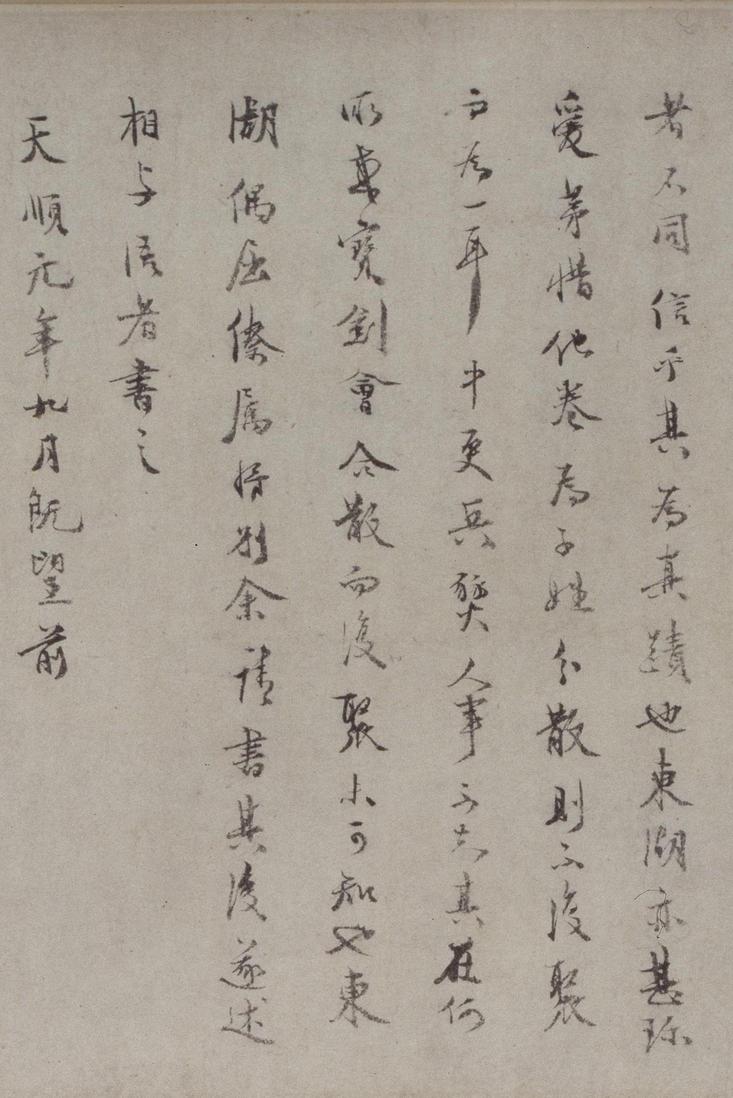 者不同信乎其為真蹟也東湖亦甚珍
愛第惜他卷為子姓分散則不復聚
而為一耳中更兵燹人事不知其在何
所重寶劍會合散而復聚未可知也東
湖偶屈僚属將别余請書其後遂述
相与語者書之
天順元年九月既望前